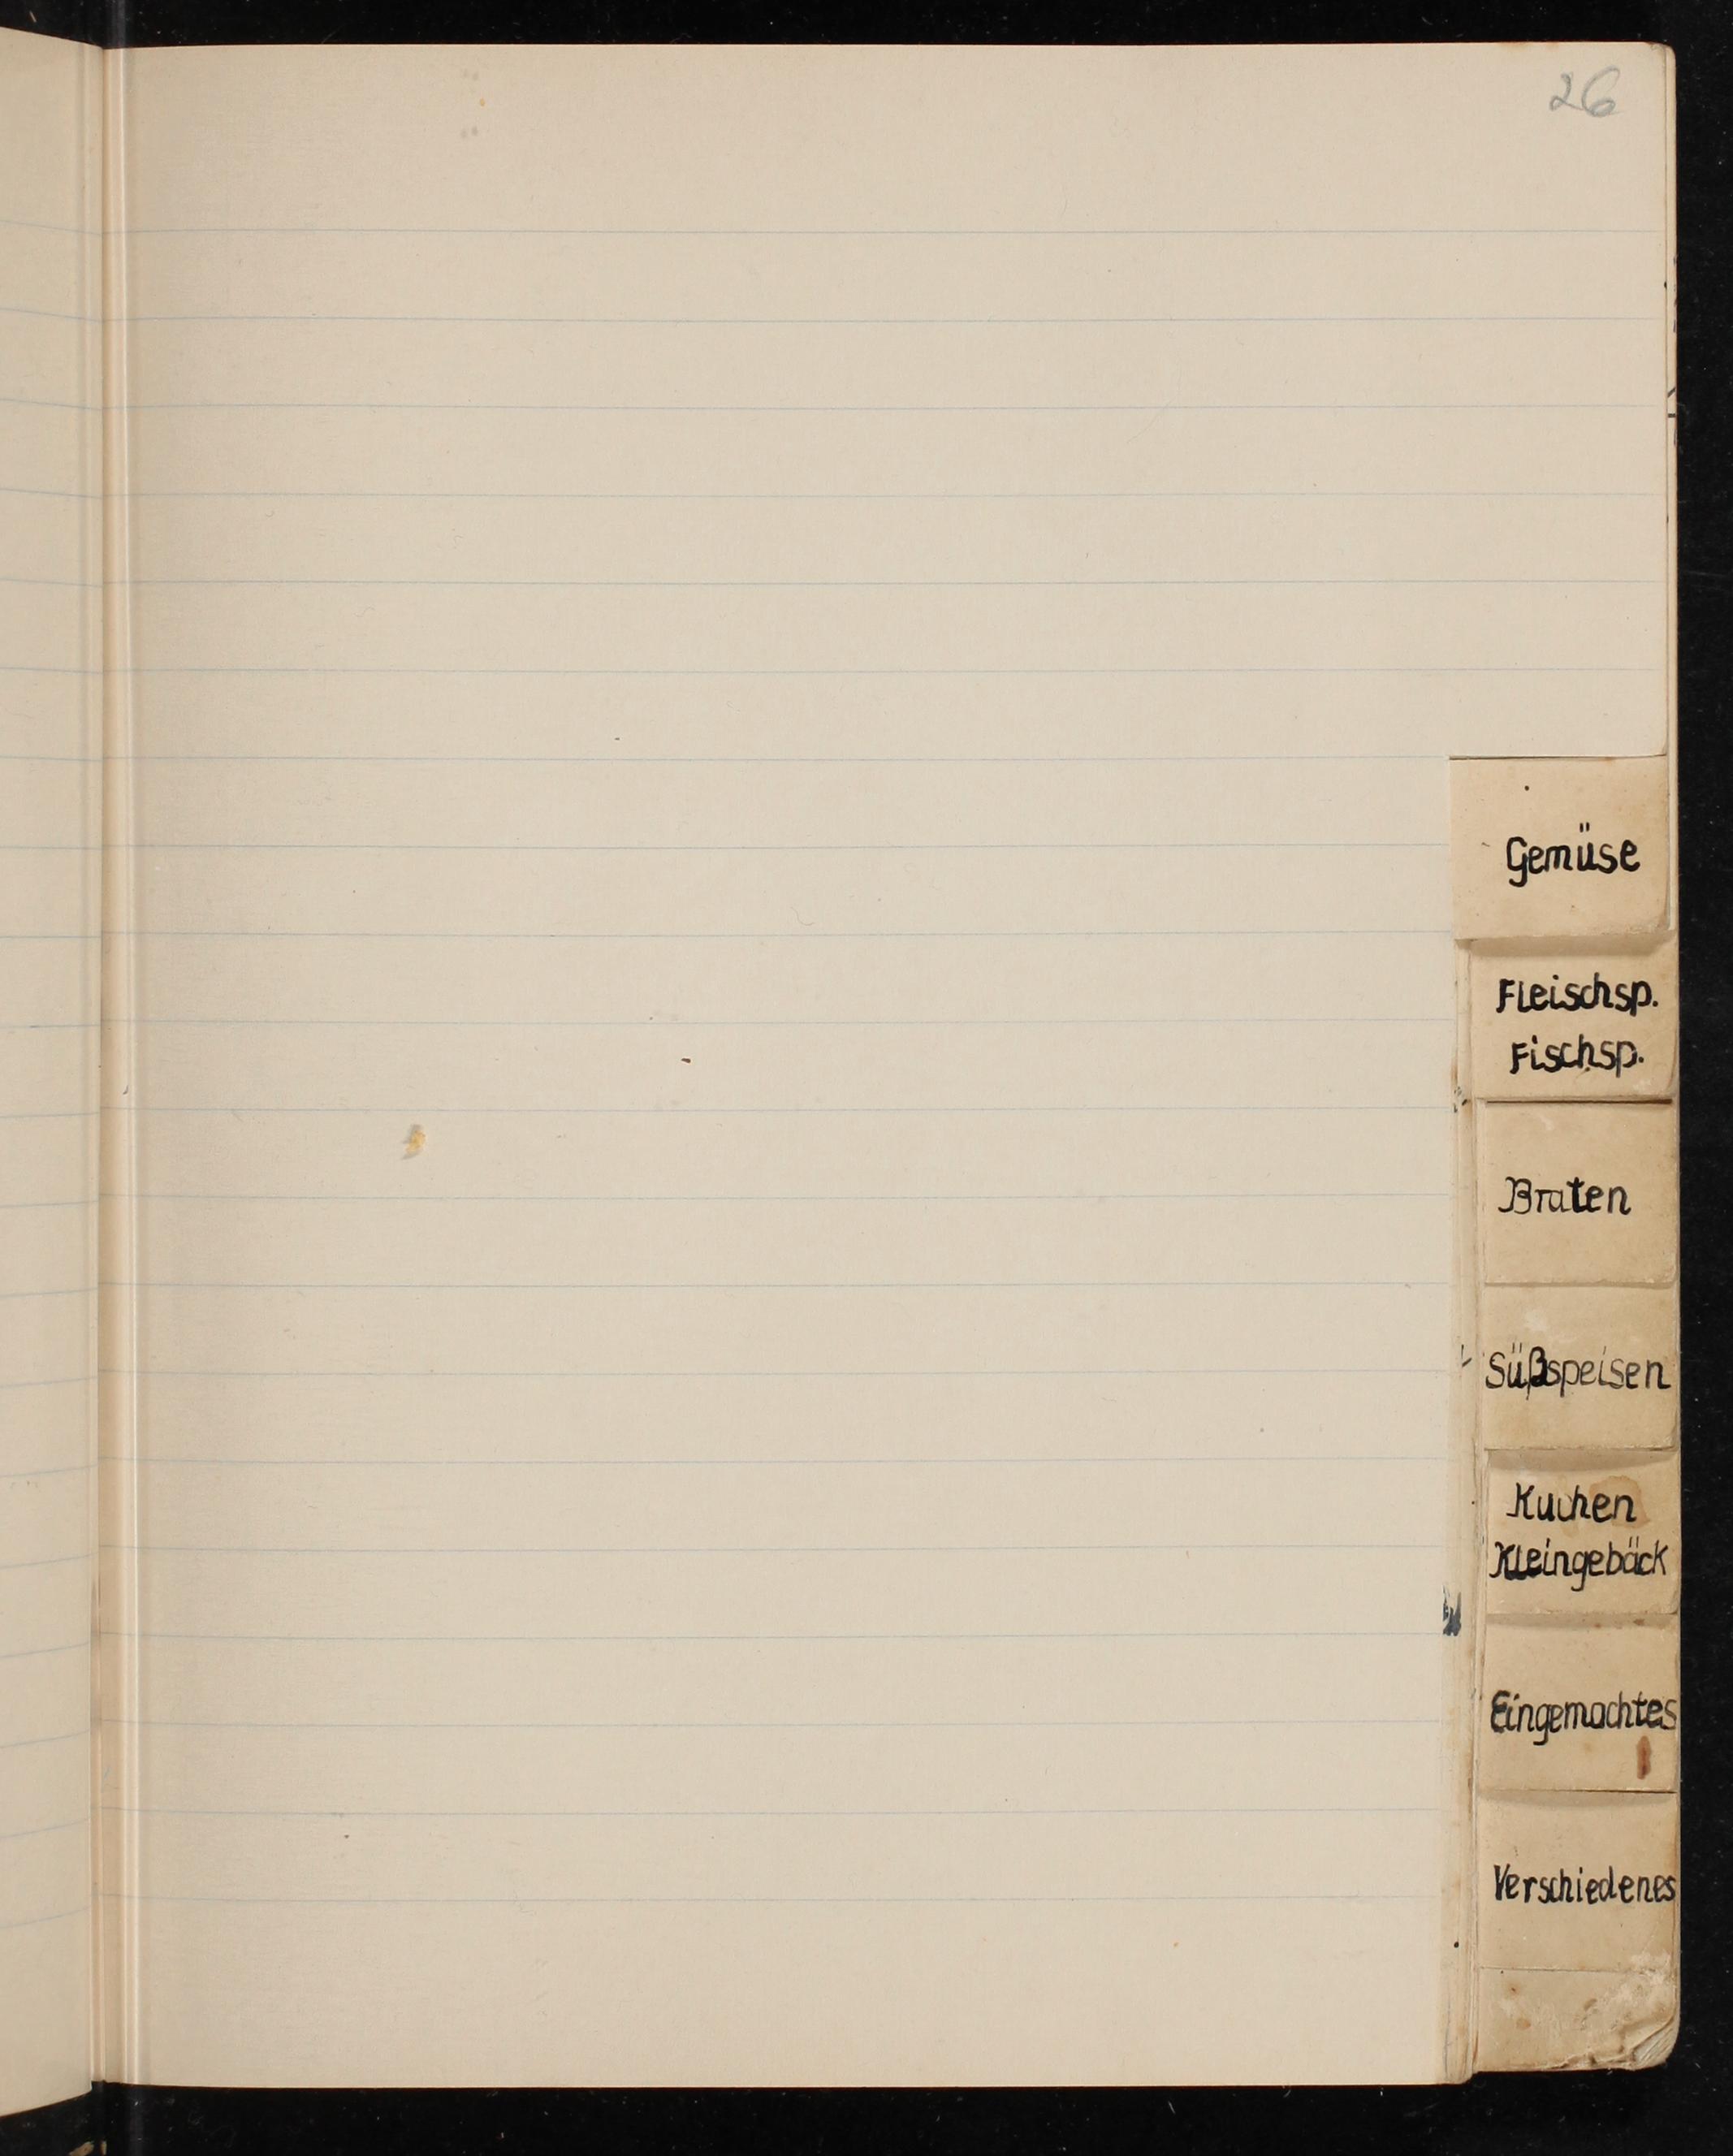 26
Gemüse
Fleischsp.
Fischsp.
Braten
Süßspeisen
Kuchen
Kleingebäck
Eingemachtes
Verschiedenes